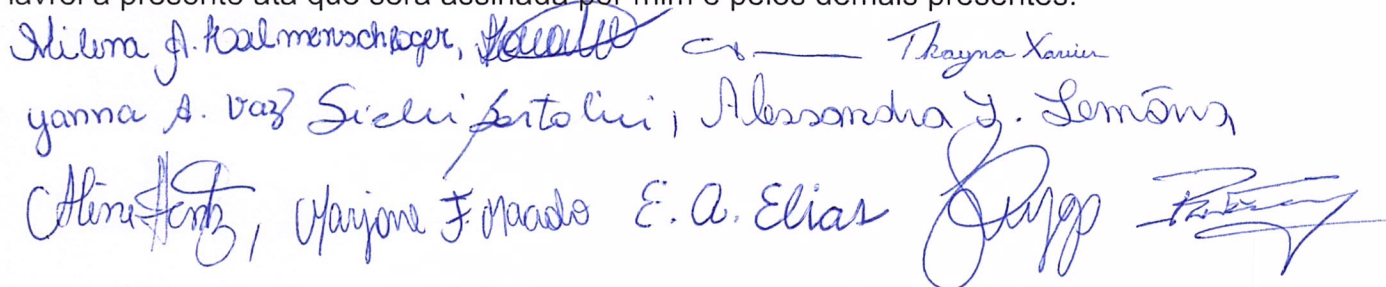 lavrei a presente ata que será assinada por mim e pelos demais presentes.
Milena A. Kalmenschlager, Thayna Xavier
yanna A. vaz Sichi Bortolini, Alessandra Lemõns,
Aline Hentz, Marjone F. Macado E. A. Elias